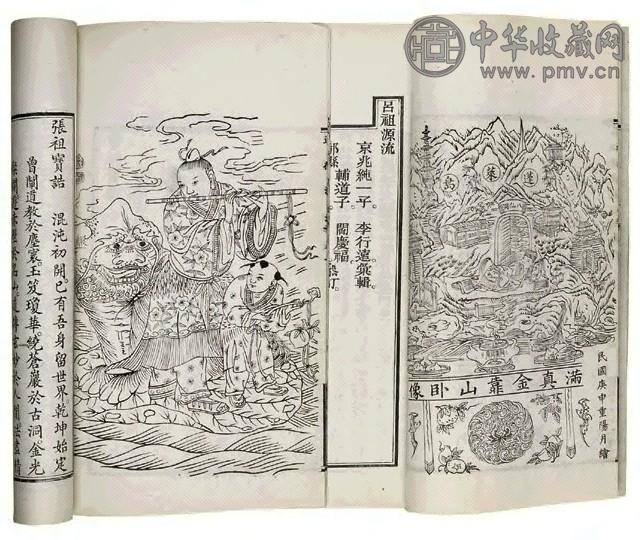 中华收藏网
www.pmv.cn
呂祖源流
京兆純一子。李行遠彙輯
輔道子。閻慶福
蓬萊島
民國庚申重陽月繪
滿真金靠山卧像
張祖寶誥 混沌初開已有吾身留世界乾坤始定
曾闡道教於塵寰玉笈瓊華繞蒼巖於古洞金光